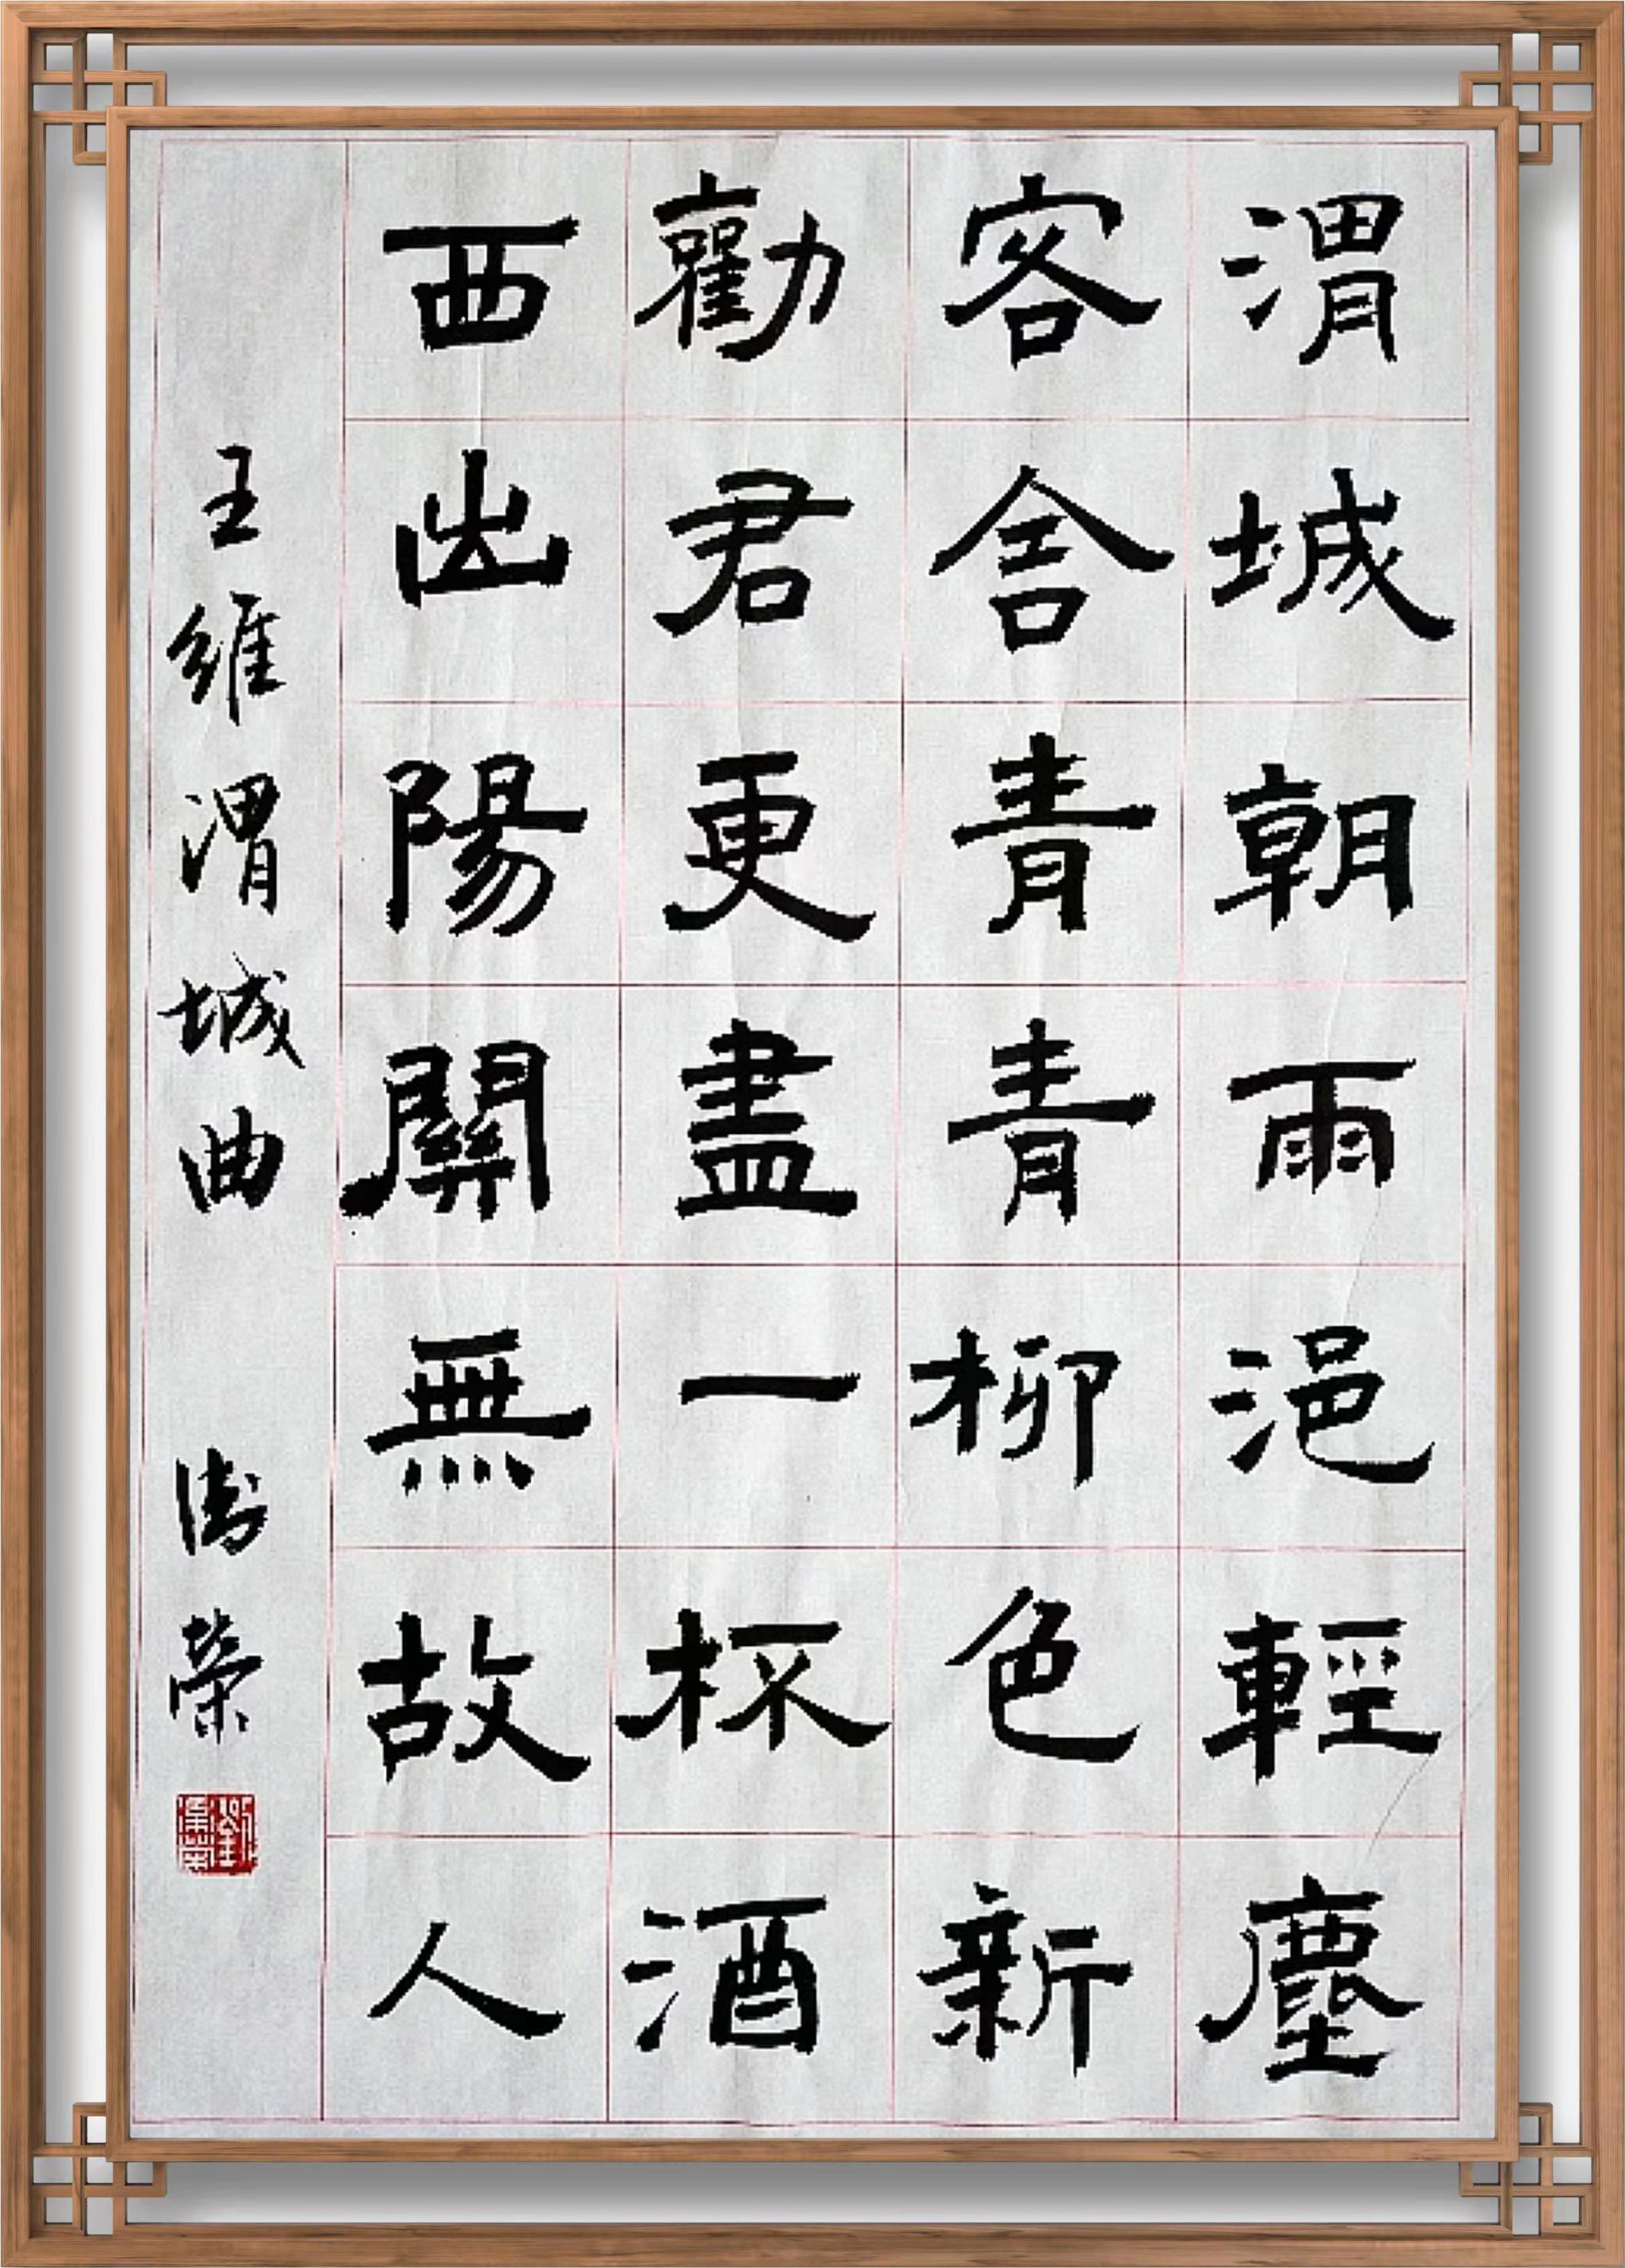 渭城朝雨浥輕塵
客舍青青柳色新
勸君更盡一杯酒
西出陽關無故人
王維渭城曲 榮